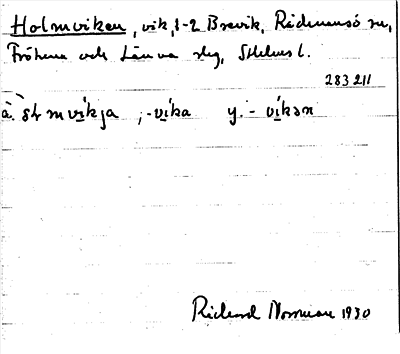 Holmviken, vik, 1-2 Brevik, Rådmansö sn,
Frötuna och Länna slg, Sthlms l.
283 211
å. hɷmvikja, -vika y. - vikən
Richard Norrman 1930